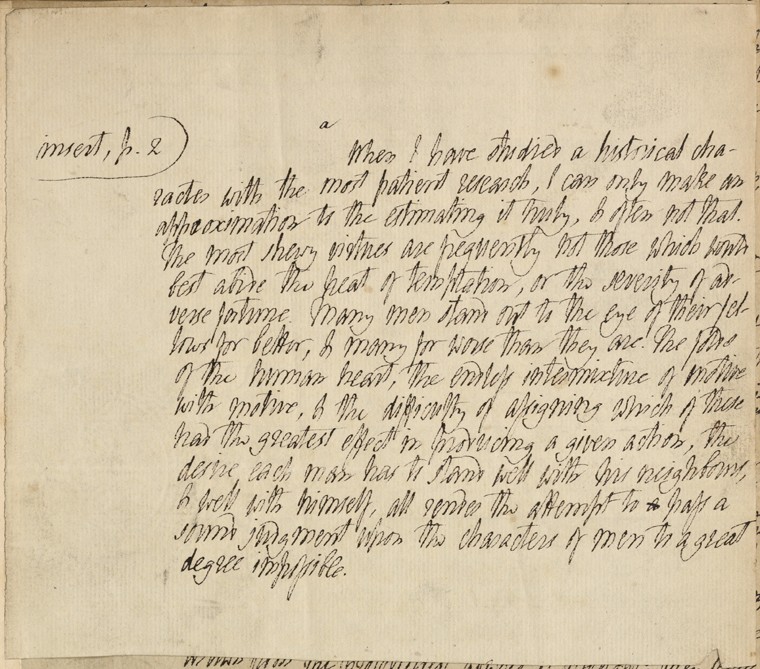 insert, p. 2
a
When I have studied a historical cha-
racter with the most patient research, I can only make an
approximation to the estimating it truly, & often not that.
The most shewy virtues are frequently not those which would
best abide the heat of temptation, or the severity of ad-
verse fortune. Many men stand out to the eye of their fel-
lows for better, & many for worse than they are. The folds
of the human heart, the endless intermixture of motive
with motive, & the difficulty of assigning which of these
has the greatest effect in producing a given action, the
desire each man has to stand well with his neighbours,
& well with himself, all render the attempt to pass a
sound judgment upon the characters of men to a great
degree impossible.